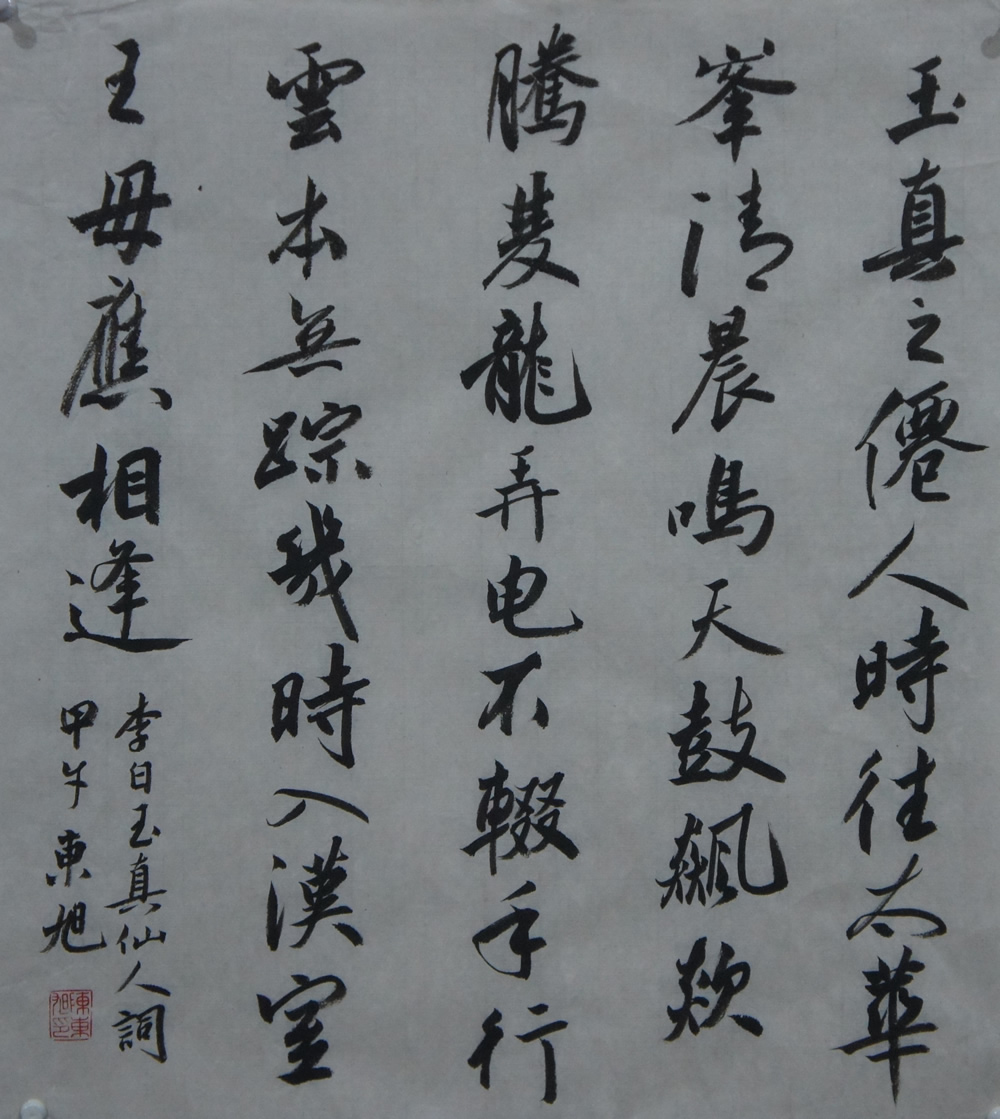 玉真之僊人時往太華
峯清晨鳴天鼓飈欻
騰雙龍弄电不輟手行
雲本無踪幾時入漢室
王母應相逢
李白玉真仙人詞
甲午東旭